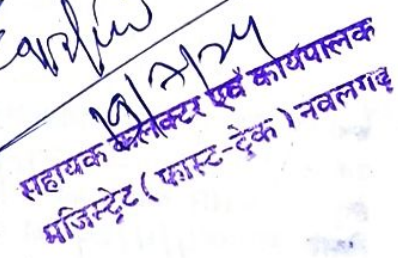 19/7/24
सहायक कलक्टर एवं कार्यपालक
मजिस्ट्रेट ( फास्ट-ट्रेक ) नवलगढ़